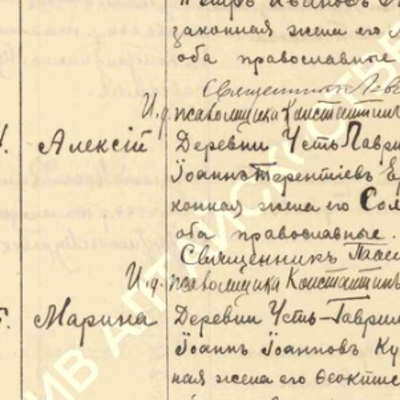 Петръ Ивановъ
законная жена его
оба православные
Священникъ
И.д. псаломщика Константинъ
Алексій Деревни Усть-Гаври
Іоаннъ Терентіевъ Ер
конная жена его Сол
оба православные.
Священникъ Паве
И.д. псаломщика Константинъ
Марина Деревни Усть-Гаврил
Іоаннъ Іоанновъ Ку
ная жена его Феокти
ИВ АЛТАЙСК